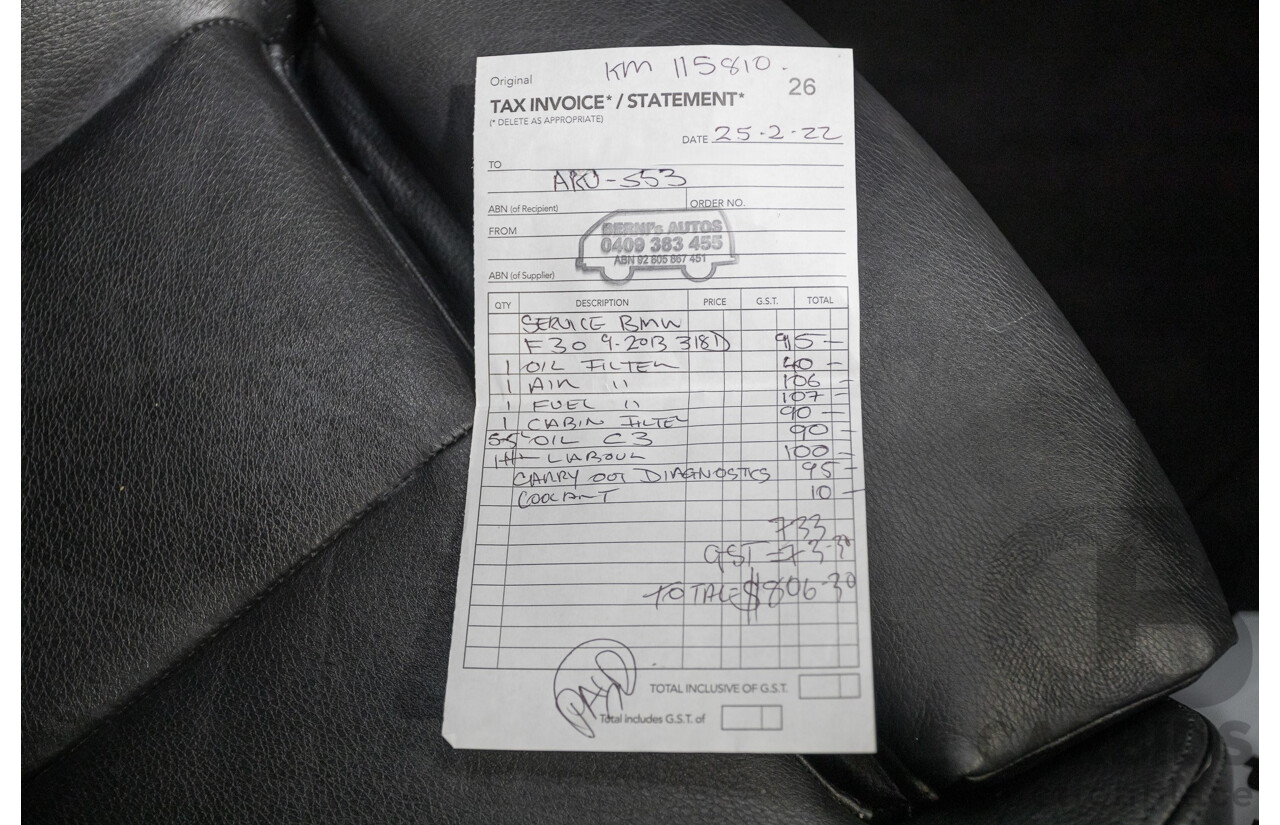 KM 115810.
Original
26
TAX INVOICE* / STATEMENT*
(* DELETE AS APPROPRIATE)
DATE 25-2-22
TO
AKU-553
ABN (of Recipient) ORDER NO.
FROM
BERNI's AUTOS
0409 383 455
ABN 92 805 867 451
ABN (of Supplier)
QTY DESCRIPTION PRICE G.S.T. TOTAL
SERVICE BMW
F30 9-2013 318D 95 —
1 OIL FILTER 40 —
1 AIR " 106 —
1 FUEL " 107 —
1 CABIN FILTER 90 —
5-5L OIL C3 90 —
1H LABOUR 100 —
CARRY OUT DIAGNOSTICS 95 —
COOLANT 10 —
733
GST = 73-30
TOTAL $806-30
PAID
TOTAL INCLUSIVE OF G.S.T.
Total includes G.S.T. of